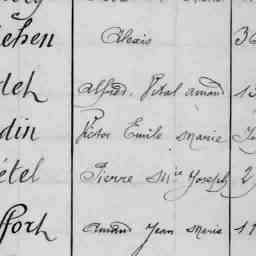 ehen Alexis 36
deh Alfred Vital Amand 13
din Victor Emile Marie
étel Pierre Mie Joseph 2
ffort Amand Jean Marie 11